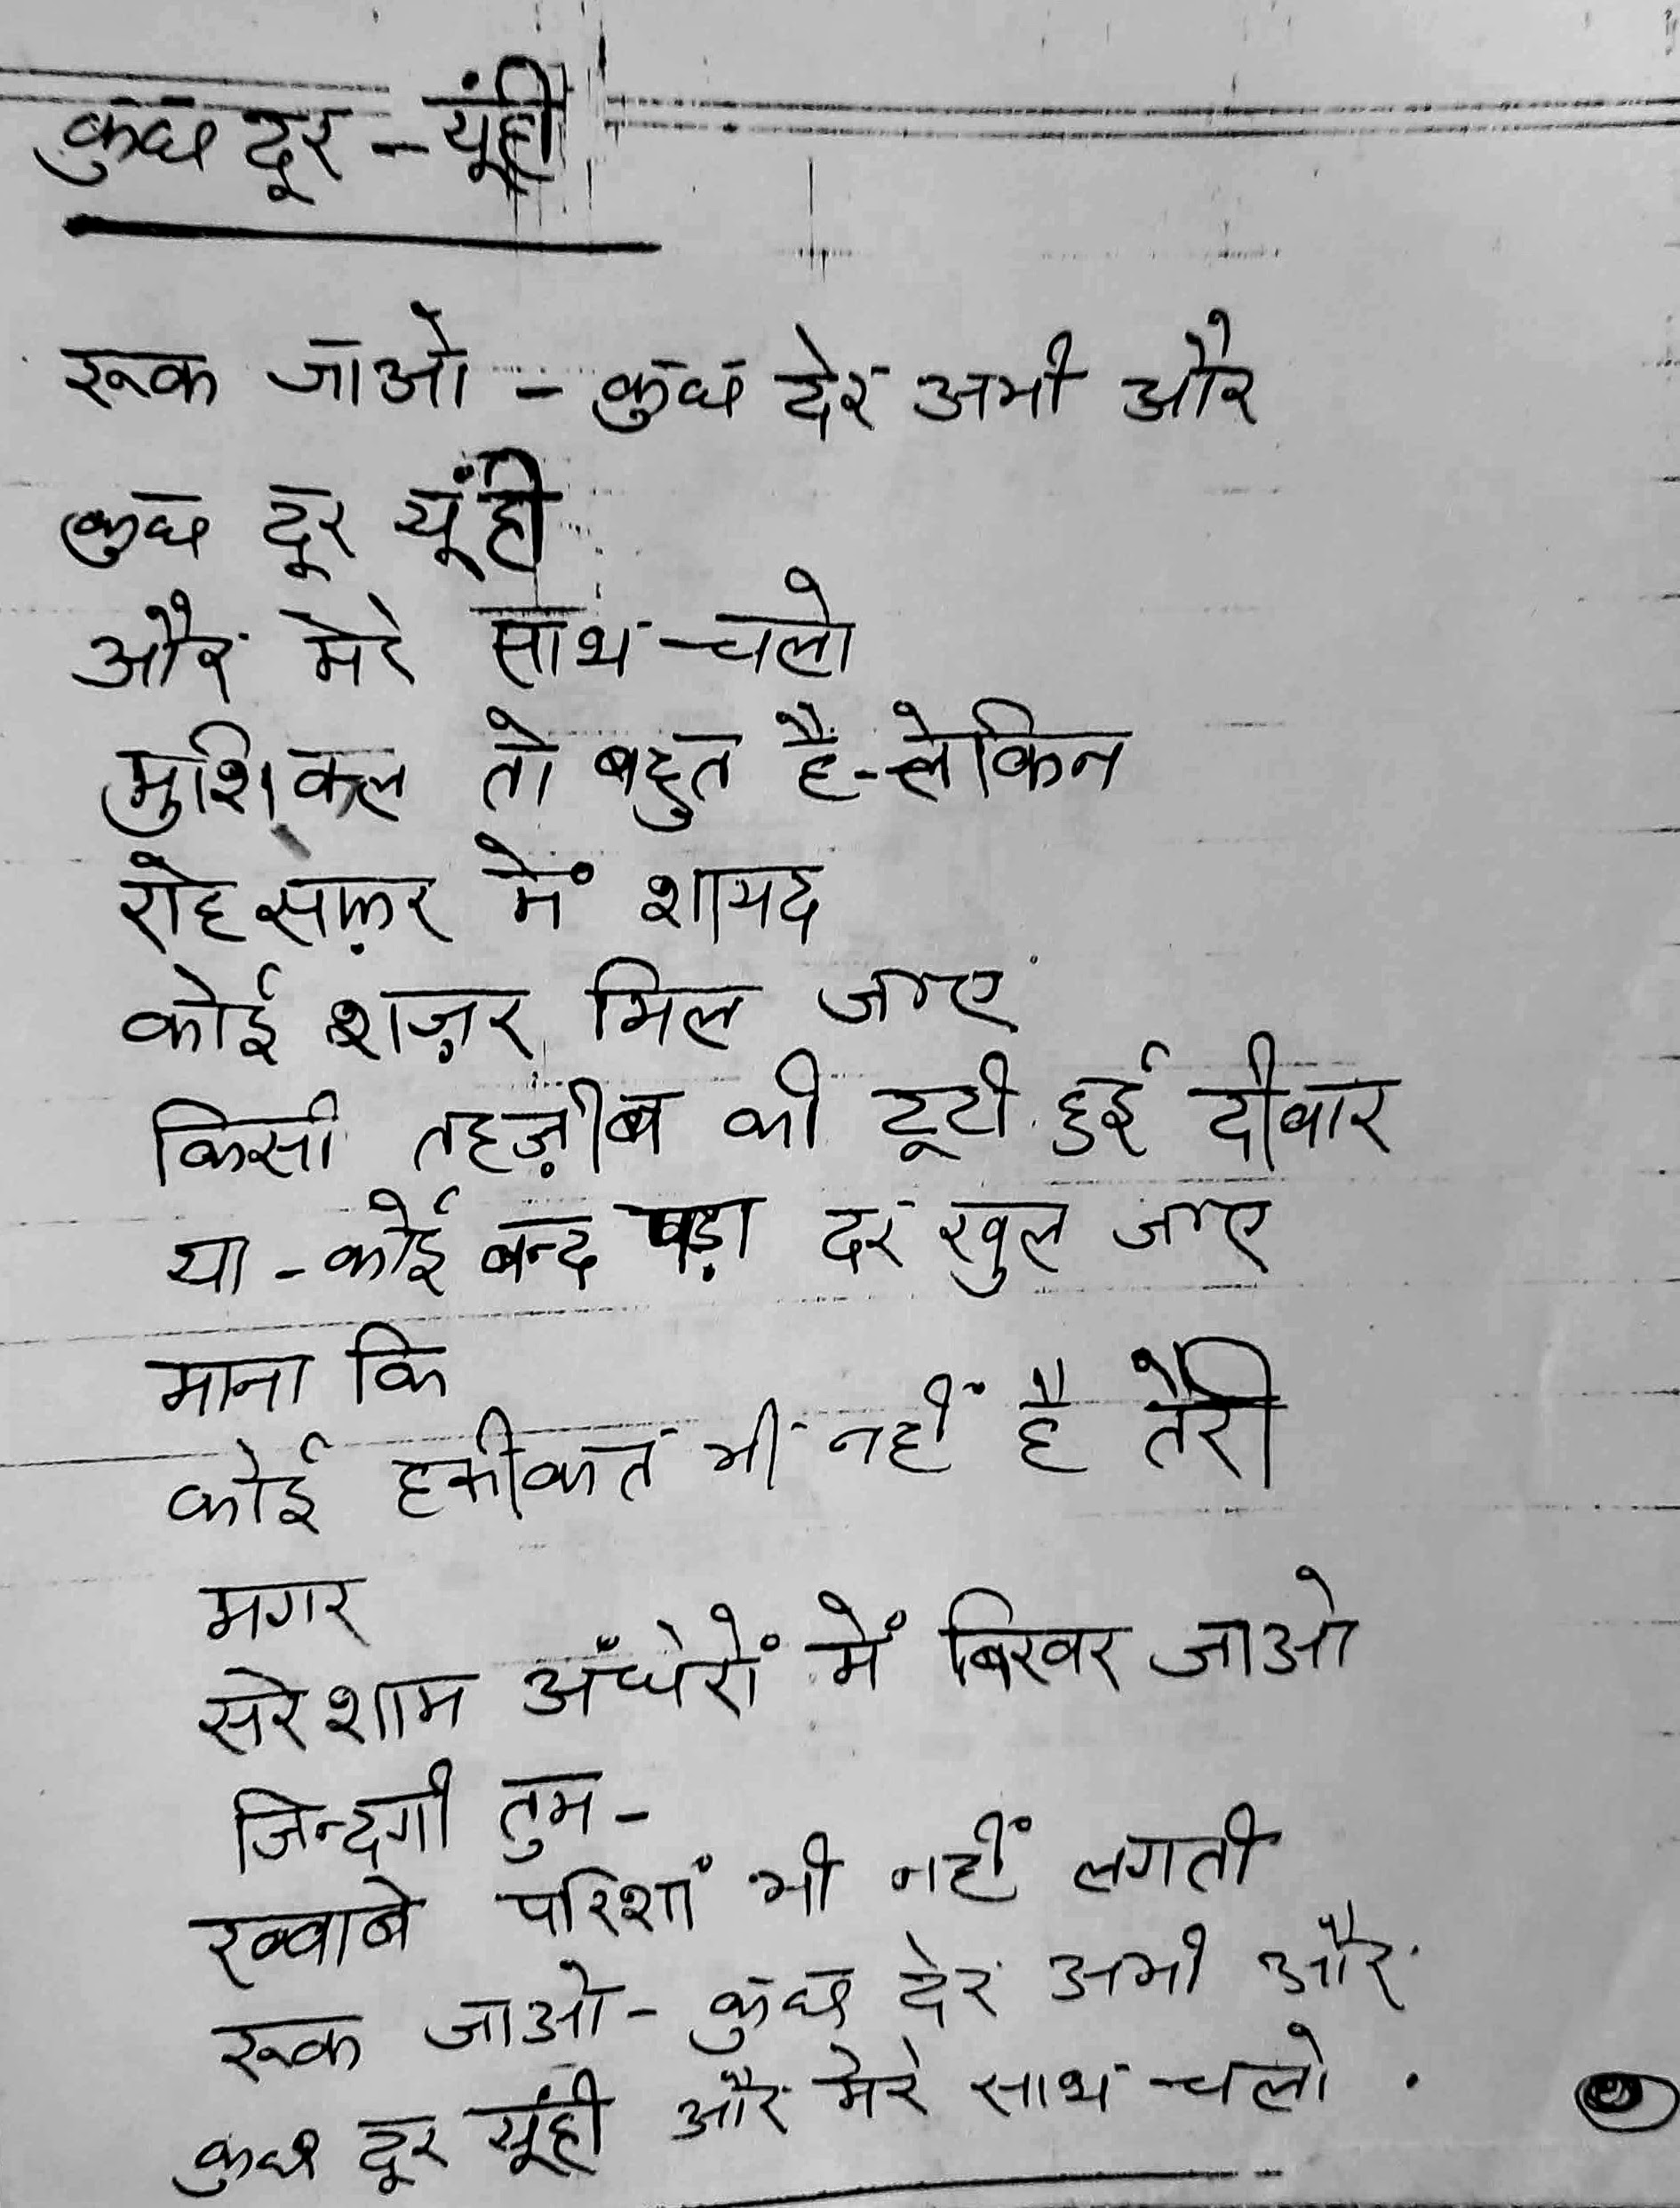 कुछ दूर - यूंही
रूक जाओ - कुछ देर अभी और
कुछ दूर यूंही
और मेरे साथ चलो
मुशिकल तो बहुत है - लेकिन
राहे सफ़र में शायद
कोई शज़र मिल जाए
किसी तहज़ीब की टूटी हुई दीवार
या - कोई बन्द पड़ा दर खुल जाए
माना कि
कोई हकीकत भी नहीं है तेरी
मगर
सरे शाम अंधेरों में बिखर जाओ
जिन्दगी तुम -
ख्वाबे परिशां भी नहीं लगती
रूक जाओ - कुछ देर अभी और
कुछ दूर यूंही और मेरे साथ चलो .